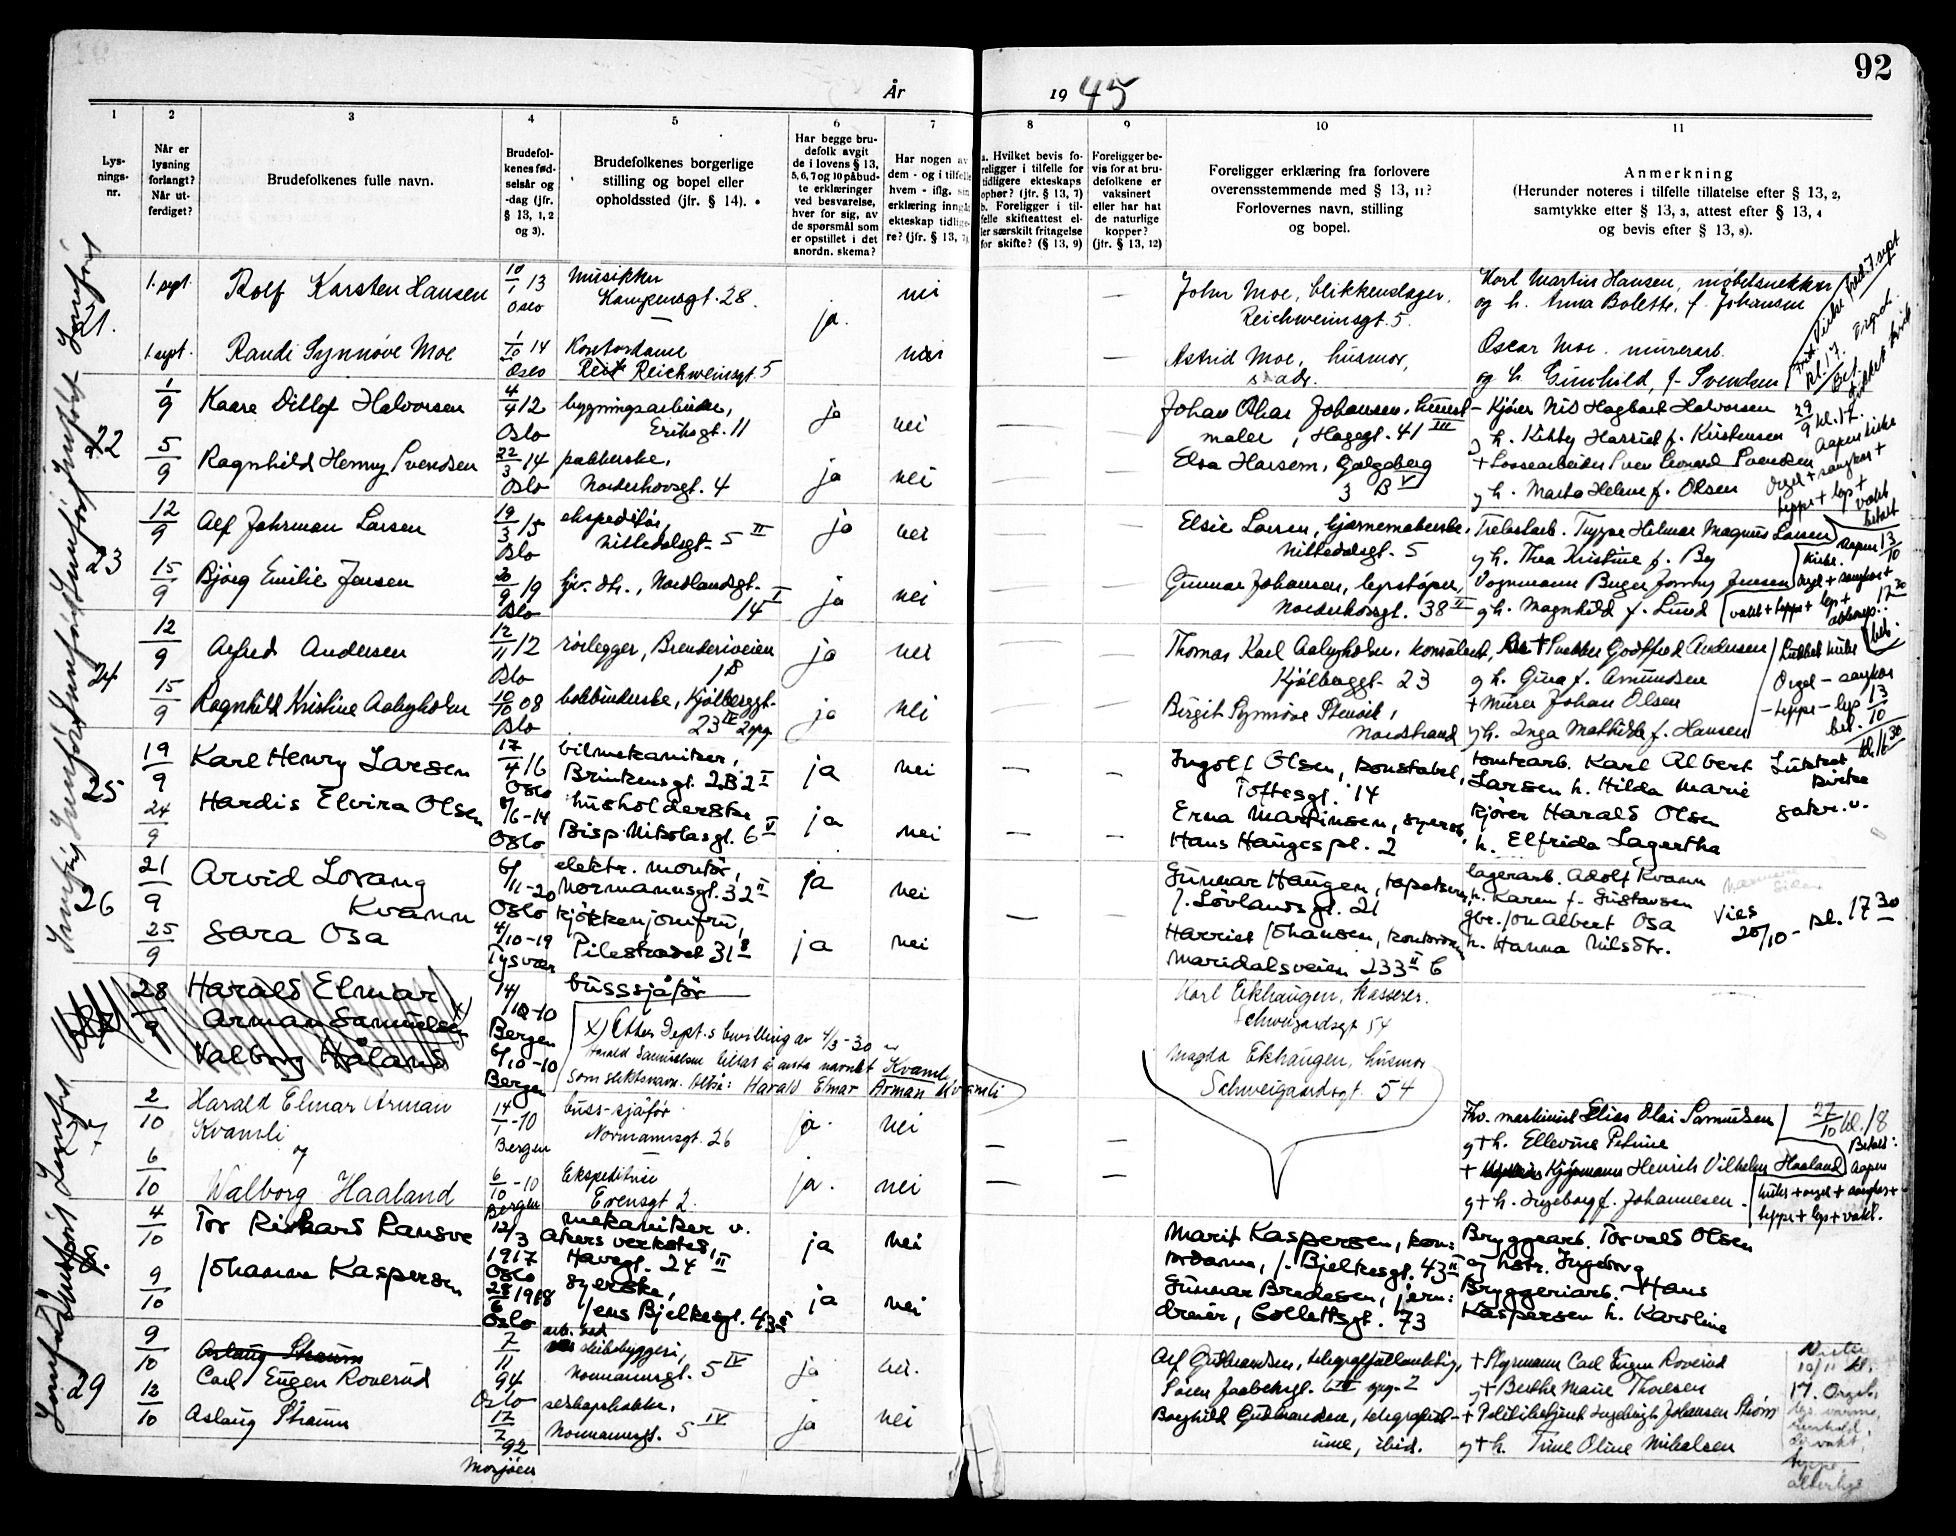 92
År 1945
1 2 3 4 5 6 7 8 9 10 11
Lys-
nings-
nr.
Når er
lysning
forlangt?
Når ut-
ferdiget?
Brudefolkenes fulle navn.
Brudefol-
kenes fød-
selsår og
-dag (jfr.
§ 13, 1, 2
og 3).
Brudefolkenes borgerlige
stilling og bopel eller
opholdssted (jfr. § 14).
Har begge bru-
defolk avgit
de i lovens § 13,
5, 6, 7 og 10 påbud-
te erklæringer
ved besvarelse,
hver for sig, av
de spørsmål som
er opstillet i det
anordn. skema?
Har nogen av
dem - og i tilfelle
hvem - iflg. sin
erklæring inngå
ekteskap tidlige-
re? (jfr. § 13, 7).
a. Hvilket bevis fo-
religger i tilfelle for
tidligere ekteskaps
ophør? (jfr. § 13, 7)
b. Foreligger i til-
felle skifteattest el-
ler særskilt fritagelse
for skifte? (§ 13, 9)
Foreligger be-
vis for at bru-
defolkene er
vaksinert
eller har hat
de naturlige
kopper?
(jfr. § 13, 12)
Foreligger erklæring fra forlovere
overensstemmende med § 13, 11?
Forlovernes navn, stilling
og bopel.
Anmerkning
(Herunder noteres i tilfelle tillatelse efter § 13, 2,
samtykke efter § 13, 3, attest efter § 13, 4
og bevis efter § 13, 8).
21.
1. sept. Rolf Karsten Hansen 10/1 13 Oslo musikker Kampensgt. 28. ja. nei
John Moe, blikkenslager, Reichweinsgt. 5.
Karl Martin Hansen, møbelsnekker
og h. Anna Bolette, f. Johansen
1. sept. Randi Synnøve Moe 1/10 14 Oslo Kontordame Reichweinsgt. 5 nei
Astrid Moe, husmor, s. adr.
Oscar Moe. murerarb.
og h. Gunhild, f. Svendsen
22
1/9 Kaare Ditlef Halvorsen 4/4 12 Oslo bygningsarbeider, Eriksgt. 11 ja nei
Johan Oskar Johansen, kunst-
maler, Hagegt. 41 III
Kjører Nils Hagbart Halvorsen
g h. Kitty Harried f. Kristensen
29/9 kl. 17.
5/9 Ragnhild Henny Svendsen 22/3 14 Oslo pakkerske, Norderhovsgt. 4 ja nei
Elsa Harsem, Galgeberg 3 B V
+ Lossearbeider Sven Leonard Svendsen
g h. Marta Helene f. Olsen
Orgel + sangkor +
teppe + lys +
vakt
betalt
23
12/9 Alf Johrman Larsen 19/3 15 Oslo ekspeditør, Nittedalsgt. 5 II ja nei
Elsie Larsen, hjørnemakerske,
Nittedalsgt. 5
Trelastarb. Trygve Hilmar Magnus Larsen
g h. Thea Kristine f. By
15/9 Bjørg Emilie Jensen 20/9 19 Oslo hjv. dtr., Nordlandsgt. 14 I ja nei
Gunnar Johansen, lysstøper,
Norderhovsgt. 38 II
Vognmann Birger Jonny Jensen
g h. Magnhild f. Lund
24
12/9 Alfred Andersen 12/11 12 Oslo rørlegger, Brenneriveien 1B ja nei
Thomas Karl Aabyholm, konsulent,
Kjølberggt. 23
+ Snekker Godtfred Andersen
g h. Gina f. Amundsen
Lukket kirke
Orgel - sangkor
- teppe - lys 13/10
bet.
15/9 Ragnhild Kristine Aabyholm 10/10 08 Oslo bokbinderske, Kjølberggt. 23 IV 2 opg. ja nei
Birgit Synnøve Stenvik,
Nordstrand
+ Murer Johan Olsen
g h. Inga Mathilde f. Hansen
25
19/9 Karl Henry Larsen 17/4 16 Oslo bilmekaniker, Brinkensgt. 2B 2 I ja nei
Ingolf Olsen, konstabel,
Toftesgt. 14
tomtearb. Karl Albert
Larsen h. Hilda Marie
Lukket
kirke
sakr. v.
24/9 Hardis Elvira Olsen 8/6-14 Oslo husholderske Bisp Nikolasgt. 6 V ja nei
Erna Martinsen, syersk,
Hans Haugespl. 2
kjører Harald Olsen
h. Elfrida Lagertha
26
21/9 Arvid Lorang Kvann 6/11-20 Oslo elektr. montør, Normannsgt. 32 II ja nei
Gunnar Haugen, tapetserer,
J. Lövlandsgt. 21
lagerarb. Adolf Kvann
h. Karen f. Gustavsen
Vies
20/10 - kl. 17 30
25/9 Sara Osa 4/10-19 Tysvær kjøkkenjomfru, Pilestredet 31 ja nei
Harriet Johansen, kontordame
Maridalsveien 233 II b
gbr. Jon Albert Osa
h. Hanna Nilsdtr.
28/9 Harald Elmar Arman Samuelsen x) 14/1 10 Bergen bussjåfør
Valborg Håland 6/10-10 Bergen
x) Efter Dept.s bevilling av 4/3-30 er
Harald Samuelsen tillat å anta navnet Kvamli
som slektsnavn. Altså: Harald Elmar Arman Kvamli
Karl Ekhaugen, kasserer.
Schweigaardsgt. 54
Magda Ekhaugen, husmor
Schweigaardsgt. 54
27
2/10 Harald Elmar Arman Kvamli 14/1-10 Bergen buss-sjåfør Normannsgt. 26 ja. nei
og
Fhv. maskinist Elias Olai Samuelsen
g + h. Ellevine Petrine
27/10 kl. 18
Betalt:
6/10 Walborg Haaland 6/10-10 Bergen Ekspeditrise Evensgt 2. ja. nei
+ Kjøpmann Henrik Vilhelm Haaland
g + h. Ingeborg f. Johannesen.
kirke + orgel + sangkor +
teppe + lys + vakt.
4/10 Tor Rikhard Ransve 12/3 1917 Oslo mekaniker v. Akers verksted, Havegt. 24 II ja nei
Marit Kaspersen, kon:
tordame, J. Bjelkesgt. 43 II
Bryggearb. Torvald Olsen
og hstr. Ingeborg
9/10 Johanne Kaspersen 28/6 1918 Oslo syerske, Jens Bjelkesgt. 43 II ja nei
Gunnar Bredesen, jern:
dreier, Collettsgt. 73
Bryggeriarb. Hans
Kaspersen h. Karoline
29
9/10 Aslaug Strøum
Carl Eugen Roverud 7/11 94 Oslo arb. ved skibsbyggeri, Normannsgt. 5 IV ja nei.
Alf Gudmandsen, telegraffullmektig,
Søren Jaabeksgt. opg. 2
+ Styrmann Carl Eugen Roverud
g + Berthe Marie Thoresen
12/10 Aslaug Strøum 17/7 92 Mosjøen Normannsgt. 5 IV ja nei
Borghild Gudmandsen, telegrafist-
inne, ibid.
+ Politibetjent Ingebrigt Johansen Strøm
g + h. Trine Oline Mikalsen